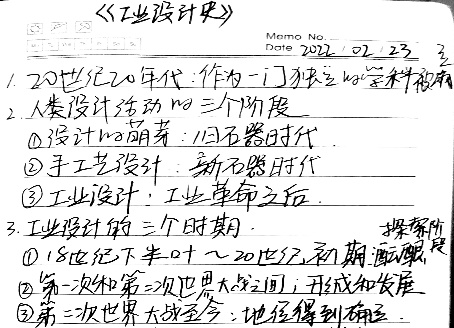 《工业设计史》
Memo No.
Date 2022 / 02 / 23
1. 20世纪20年代：作为一门独立的学科被确
立
2. 人类设计活动的三个阶段
①设计的萌芽：旧石器时代
②手工艺设计：新石器时代
③工业设计：工业革命之后.
3. 工业设计的三个时期.
①18世纪下半叶～20世纪初期：酝酿探索阶段
②第一次和第二次世界大战之间：形成和发展
③第二次世界大战至今：地位得到确立.